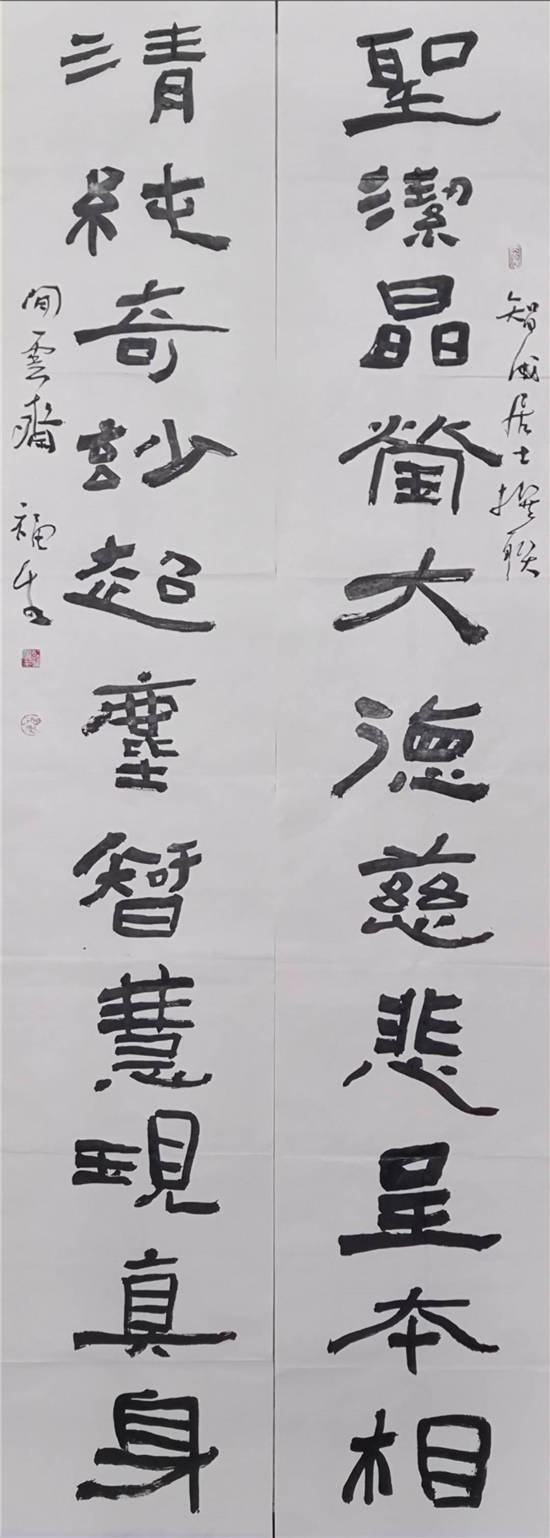 聖潔晶瑩大德慈悲呈本相
智誠居士撰聯
清純奇妙超塵智慧現真身
閒雲齋 福生